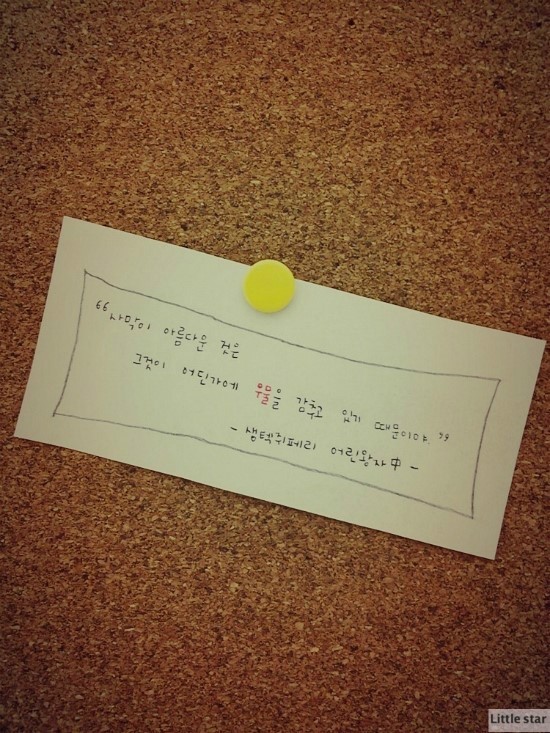 “사막이 아름다운 것은
그것이 어딘가에 우물을 감추고 있기 때문이야.”
- 생텍쥐페리 어린왕자 中 -
Little star